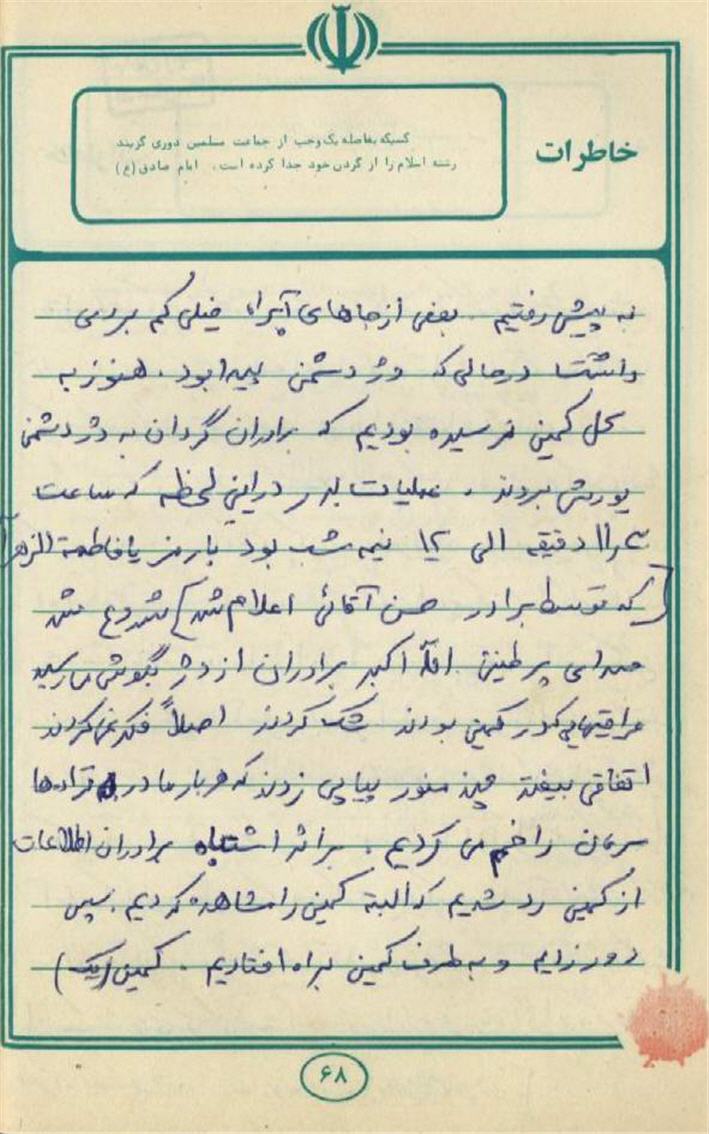 خاطرات
کسیکه بفاصله یک وجب از جماعت مسلمین دوری گزیند
رشته اسلام را از گردن خود جدا کرده است. امام صادق (ع)
به پیش رفتیم. بعضی از جاهای آبراه خیلی کم بردی
داشت در حالی که دژ دشمن پیدا بود. هنوز به
محل کمین نرسیده بودیم که برادران گردان به دژ دشمن
یورش بردند. عملیات بدر در این لحظه که ساعت
۱۱ دقیقه الی ۱۲ نیمه شب بود با رمز یا فاطمة الزهرا
[که توسط برادر حسن آقائی اعلام شد] شروع شد
صدای پرطنین الله اکبر برادران از دژ بگوش می‌رسید
عراقیهایی که در کمین بودند شک کردند اصلاً فکر نمی‌کردند
اتفاقی بیفتد چند منور پیاپی زدند که هر بار ما در قرادها
سرمان را خم می کردیم. بر اثر اشتباه برادران اطلاعات
از کمین رد شدیم که البته کمین را مشاهده کردیم. سپس
دور زدیم و به طرف کمین براه افتادیم. کمین (یک)
۶۸